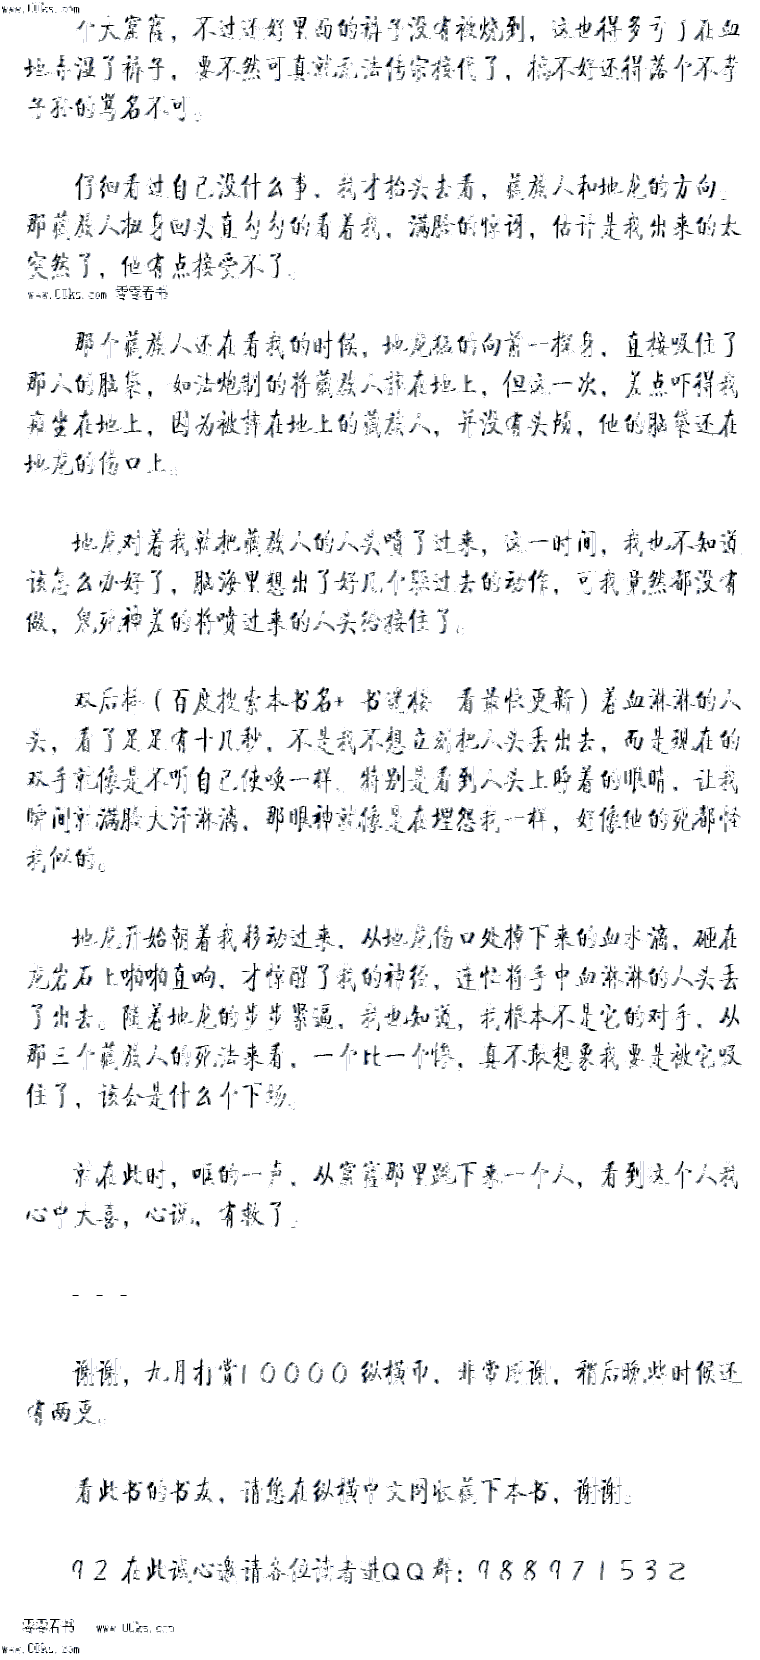 www.00ks.com
个大窟窿，不过还好里面的裤子没有被烧到，这也得多亏了在血
地弄湿了裤子，要不然可真就无法传宗接代了，搞不好还得落个不孝
子孙的骂名不可。
仔细看过自己没什么事，我才抬头去看，藏族人和地龙的方向，
那藏族人扭身回头直勾勾的看着我，满脸的惊讶，估计是我出来的太
突然了，他有点接受不了。
www.00ks.com 零零看书
那个藏族人还在看我的时候，地龙猛的向前一探身，直接吸住了
那人的脑袋，如法炮制的将藏族人摔在地上，但这一次，差点吓得我
瘫坐在地上，因为被摔在地上的藏族人，并没有头颅，他的脑袋还在
地龙的伤口上。
地龙对着我就把藏族人的人头喷了过来，这一时间，我也不知道
该怎么办好了，脑海里想出了好几个躲过去的动作，可我竟然都没有
做，鬼死神差的将喷过来的人头给接住了。
双后棒（百度搜索本书名+ 书建楼 看最快更新）着血淋淋的人
头，看了足足有十几秒，不是我不想立刻把人头丢出去，而是现在的
双手就像是不听自己使唤一样，特别是看到人头上睁着的眼睛，让我
瞬间就满脸大汗淋漓，那眼神就像是在埋怨我一样，好像他的死都怪
我似的。
地龙开始朝着我移动过来，从地龙伤口处掉下来的血水滴，砸在
龙岩石上啪啪直响，才惊醒了我的神经，连忙将手中血淋淋的人头丢
了出去。随着地龙的步步紧逼，我也知道，我根本不是它的对手，从
那三个藏族人的死法来看，一个比一个惨，真不敢想象我要是被它吸
住了，该会是什么个下场。
就在此时，哐的一声，从窟窿那里跳下来一个人，看到这个人我
心中大喜，心说，有救了。
- - -
谢谢，九月打赏10000纵横币，非常感谢，稍后晚些时候还
有两更。
看此书的书友，请您在纵横中文网收藏下本书，谢谢。
92在此诚心邀请各位读者进QQ群：988971532
零零看书 www.00ks.com
www.00ks.com